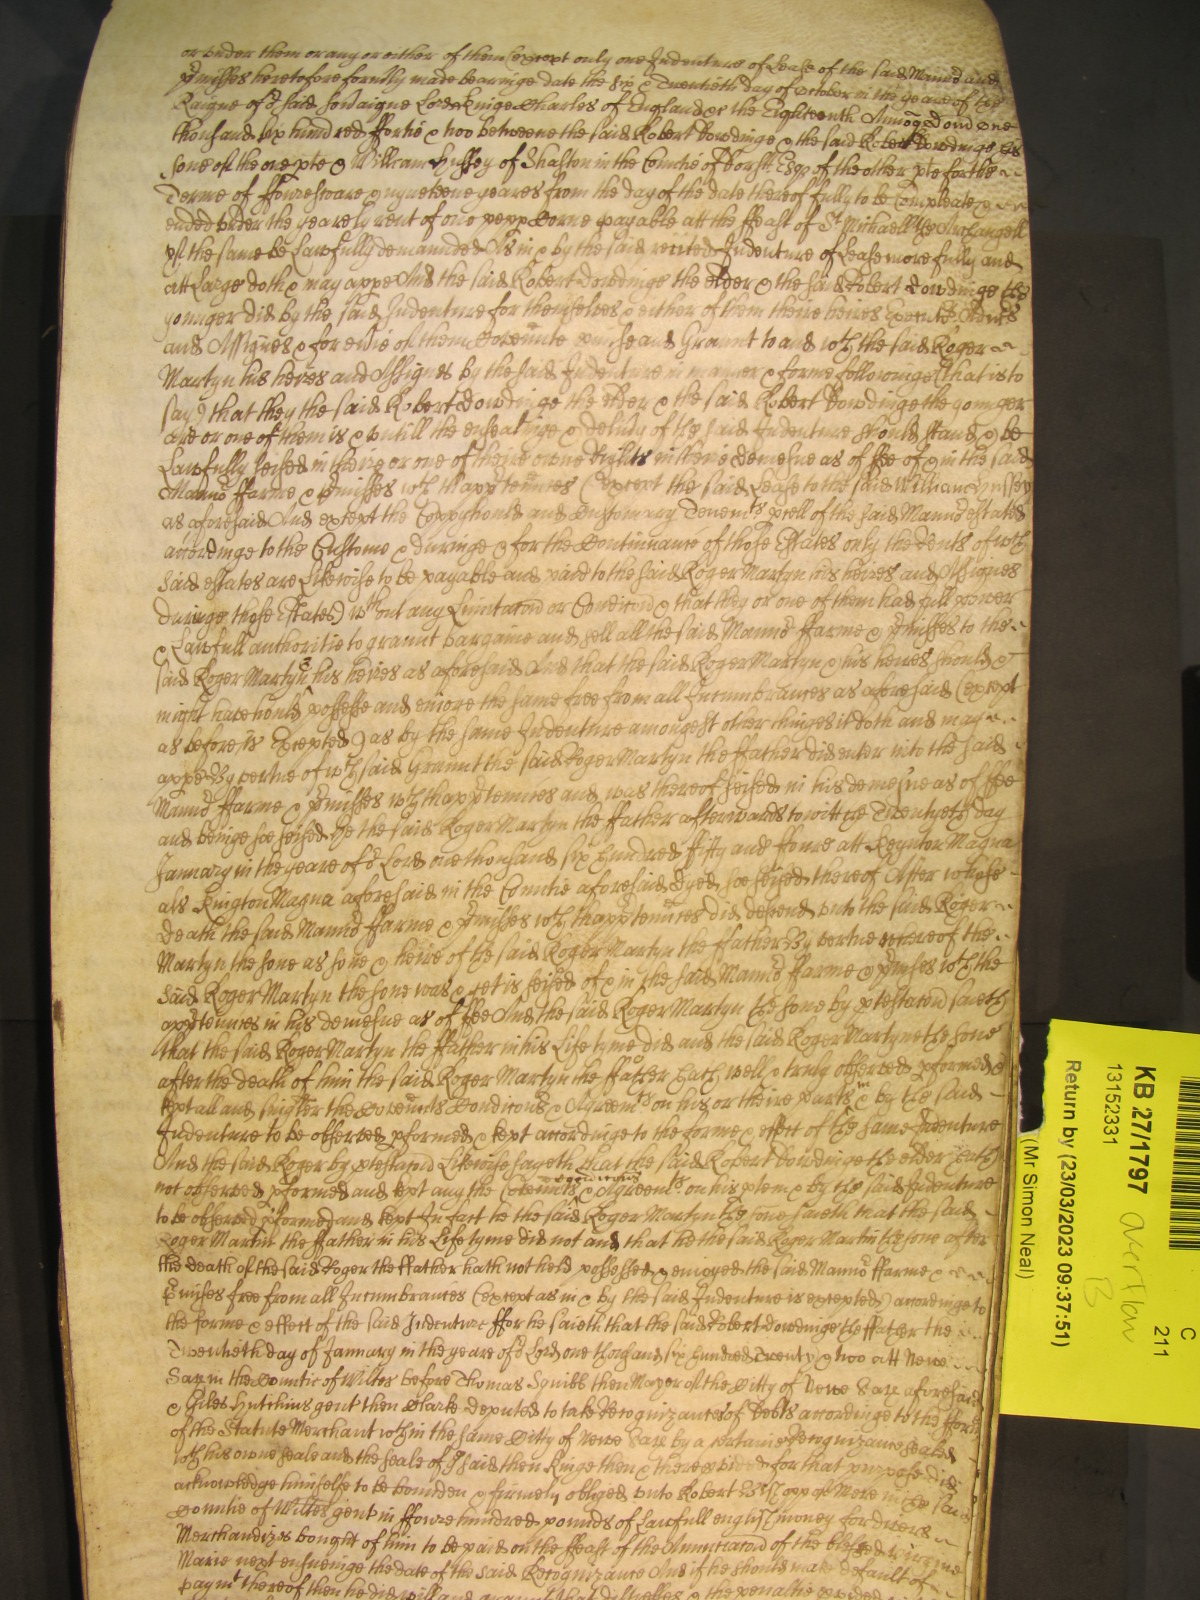 or under them or any or either of them (except only one Indenture of Lease of the said Mannor and
p'misses heretofore formlly made bearinge date the six & Twentieth day of October in the yeare of the
Raigne of o'r said Sov'aigne Lord Kinge Charles of England &c the Eighteenth Annoq Dom One
thousand six hundred ffortie & two betweene the said Robert Dowdinge & the said Robert Dowdinge his
sone of the one p'te & William Hussey of Shaston in the Countie of Dors't Esq'r of the other p'te for the
Terme of ffourescoare & nyneteene yeares from the day of the date thereof fully to be compleate &
ended under the yearely rent of one pepp Corne payable att the ffeast of S't Michaell the Archangell
yf the same be Lawfully demaunded As in & by the said recited Indenture of Lease more fully and
att Large doth & may appe And the said Robert Dowdinge the elder & the said Robert Dowdinge the
younger did by the said Indenture for themselves & either of them theire heires Execut'rs Adm'rs
and Assignes & for ev'ie of them Coven'nte p'mise and Graunt to and w'th the said Roger
Martyn his heires and Assignes by the said Indenture in manner & forme followinge (that is to
say) that they the said Robert Dowdinge the elder & the said Robert Dowdinge the younger
are or one of them is & untill the ensealinge & delivy of the said Indenture should stand & be
Lawfully seised in theire or one of theire owne Rights in theire demesne as of ffee of & in the said
Mannor ffarme & p'misses w'th th'app'tenn'ces (except the said Lease to the said William Hussey
as aforesaid And except the Coppyhould and Customary Tenem'ts p'cell of the said Mannor estated
accordinge to the Custome & duringe & for the Continuance of those Estates only the Rents of w'ch
said estates are Likewise to be payable and paid to the said Roger Martyn his heires and Assignes
duringe those Estates) w'thout any Limitacon or Condicon & that they or one of them had full power
& Lawfull authoritie to graunt bargaine and sell all the said Mannor ffarme & p'misses to the
said Roger Martyn & his heires as aforesaid And that the said Roger Martyn & his heires should &
might have hould possesse and enioye the same free from all Incumbrances as aforesaid (except
as before is Excepted) as by the same Indenture amongest other thinges it doth and may
appe By vertue of w'ch said Graunt the said Roger Martyn the ffather did enter into the said
Mannor ffarme & p'misses w'th th'app'tenn'ces and was thereof seised in his demesne as of ffee
and beinge soe seised He the said Roger Martyn the ffather afterwards to witt the Twentyeth day
January in the yeare of o'r Lord one thousand six hundred fifty and ffoure att Keynton Magna
als Kington Magna aforesaid in the Countie aforesaid Dyed soe seised thereof After whose
death the said Mannor ffarme & p'misses w'th th'app'tenn'ces did descend unto the said Roger
Martyn the sone as sone & heire of the said Roger Martyn the ffather By vertue whereof the
said Roger Martyn the sone was & yet is seised of & in the said Mannor ffarme & p'misses w'th the
app'tenn'ces in his demesne as of ffee And the said Roger Martyn the sone by p'testacon saieth
that the said Roger Martyn the ffather in his Life tyme did and the said Roger Martyn the sone
after the death of him the said Roger Martyn the ffather hath well & truly observed p'formed &
kept all and singler the Coven'nts Condicons & Agreem'ts on his or theire parts in & by the said
Indenture to be observed p'formed & kept accordinge to the forme & effect of the same Indenture
And the said Roger by p'testacon Likewise sayeth that the said Robert Dowdinge the elder hath
not observed p'formed and kept any the Coven'nts Condicons & Agreem'ts on his p'te in & by the said Indenture
to be observed p'formed and kept In fact he the said Roger Martyn the sone saieth that the said
Roger Martin the ffather in his Life tyme did not and that he the said Roger Martin the sone after
the death of the said Roger the ffather hath not held possessed & enioyed the said Mannor ffarme &
p'misses free from all Incumbrances (except as in & by the said Indenture is excepted) accordinge to
the forme & effect of the said Indenture ffor he saieth that the said Robert Dowdinge the ffather the
Twentieth day of January in the yeare of o'r Lord one thousand six hundred Twenty & two att Newe
Sarum in the Countie of Wiltes before Thomas Squibb then Mayor of the Citty of Newe Sar aforesaid
& Giles Hutchins gent then Clarke deputed to take Recognizances of Debts accordinge to the fforme
of the Statute Merchant w'thin the same Citty of Newe Sar by a certaine Recognizance sealed
w'th his owne seale and the seale of y'e said then Kinge then & there p'vided for that purpose did
acknowledge himselfe to be bounden & firmely obliged unto Robert of Mere in the said
Countie of Wiltes gent in ffoure hundred pounds of Lawfull english money for divers
Merchandizes bought of him to be paid on the ffeast of the Annuntiacon of the blessed virgine
Marie next ensueinge the date of the said Recognizance And if he should make default of
paym't thereof then he did will and graunt that distresses & the penaltie p'vided
KB 27/1797
13152331
Return by (23/03/2023 09:37:51)
(Mr Simon Neal)
C
211
overflow
B